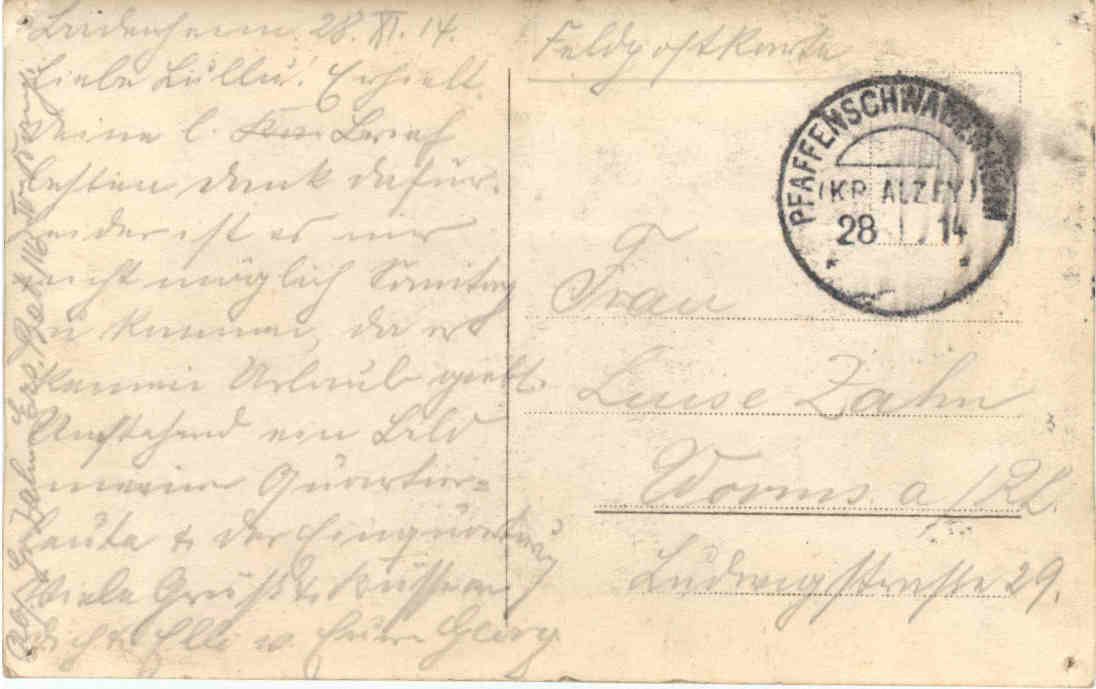 28. XI. 14.
Liebe Lullu! Erhielt
Deine l. Brief
besten Dank dafür.
Leider ist es mir
nicht möglich Sonntag
zu kommen, da es
keinen Urlaub giebt.
Umstehend ein Bild
meiner Quartier=
Leute & der Einquartierung
Viele Grüße & Küsse an
Dich & Elli v. Eurem Georg
Feldpostkarte
PFAFFENSCHWABENHEIM
(KR. ALZEY)
28 14
Frau
Luise Zahn
Worms a/Rh.
Ludwigstrasse 29.
Zahn Ers. Batl. 116